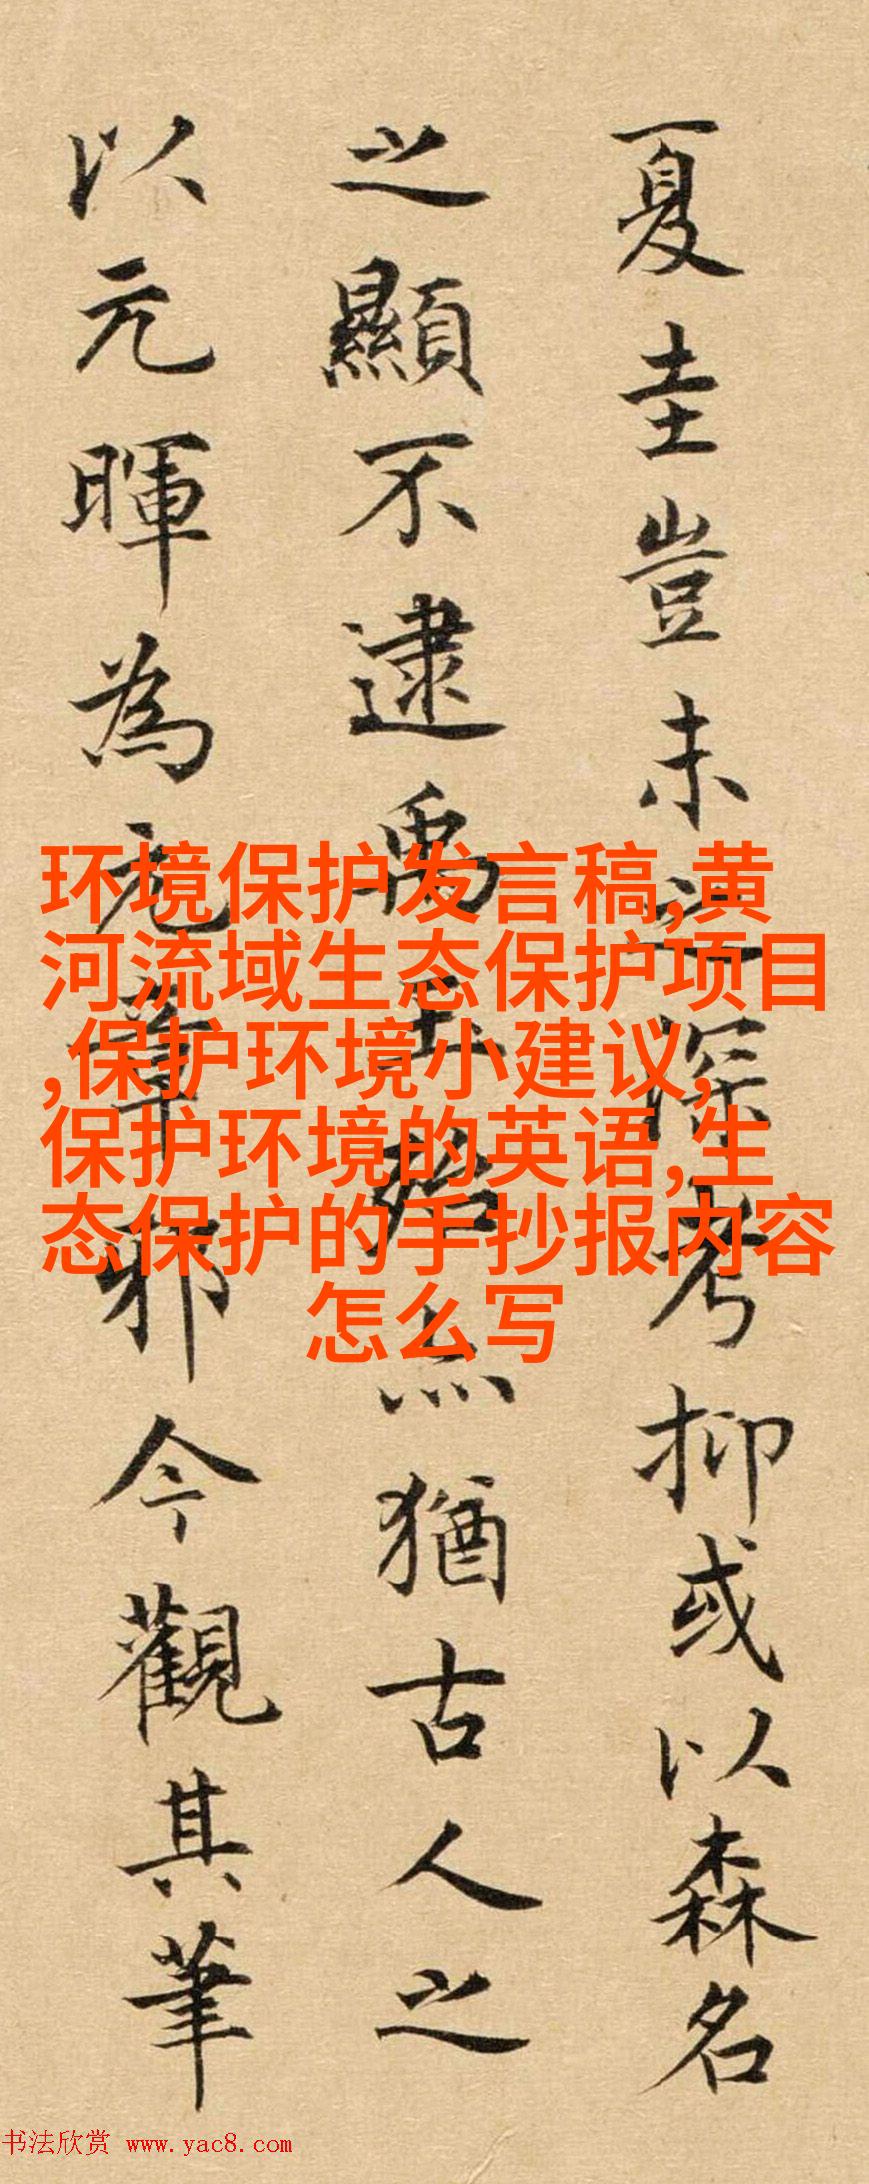 夏圭豈未之深考抑或以森名
之顯不逮禹玉殆亦猶古人之
以元暉為元章邪今觀其筆
环境保护发言稿,黄
河流域生态保护项目
,保护环境小建议,
保护环境的英语,生
态保护的手抄报内容
怎么写
书法欣赏 www.yac8.com